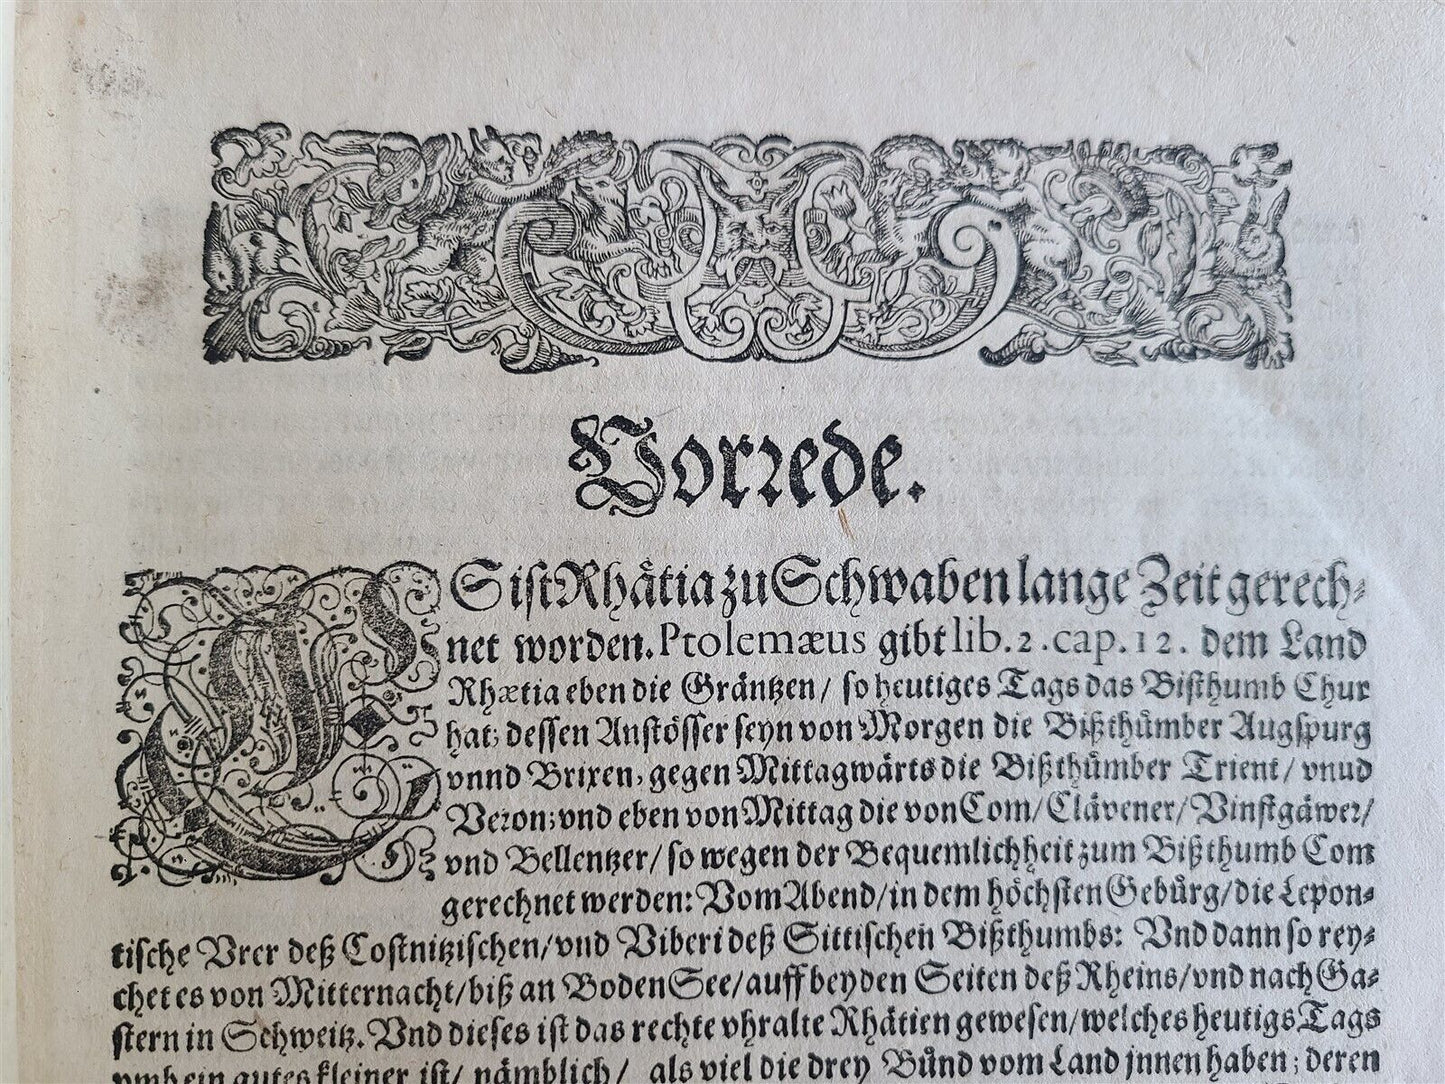 Vorrede.
ES ist Rhätia zu Schwaben lange Zeit gerech⸗
net worden. Ptolemæus gibt lib. 2. cap. 12. dem Land
Rhætia eben die Gräntzen/ so heutiges Tags das Bisthumb Chur
hat; dessen Anstösser seyn von Morgen die Bißthümber Augspurg
vnnd Brixen, gegen Mittagwärts die Bißthümber Trient/ vnud
Veron; vnd eben von Mittag die von Com/ Clävener/ Vinstgäwer/
vnd Bellentzer/ so wegen der Bequemlichheit zum Bißthumb Com
gerechnet werden: Vom Abend/ in dem höchsten Gebürg/ die Lepon⸗
tische Vrer deß Costnitzischen/ vnd Viberi deß Sittischen Bißthumbs: Vnd dann so rey⸗
chet es von Mitternacht/ biß an Boden See/ auff beyden Seiten deß Rheins/ vnd nach Ga⸗
stern in Schweitz. Vnd dieses ist das rechte vhralte Rhätien gewesen/ welches heutigs Tags
vmb ein gutes kleiner ist/ nämblich/ als viel die drey Bünd vom Land jnnen haben; deren